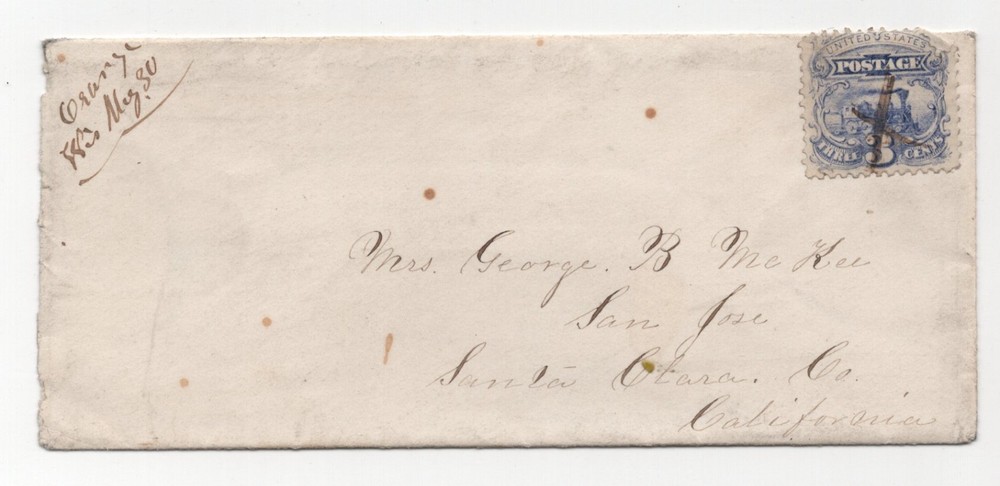 Orang
Wis May 30
UNITED STATES
POSTAGE
THREE 3 CENTS
Mrs. George. B McKee
San Jose
Santa Clara. Co.
California